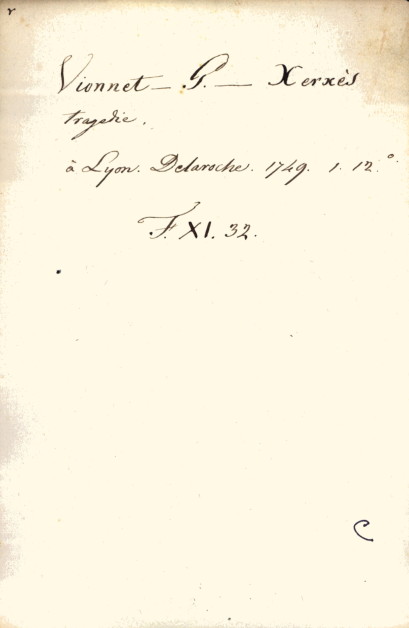 r
Vionnet — G. — Xerxès
tragedie.
à Lyon. Delaroche. 1749. 1. 12.°
F. XI. 32.
C